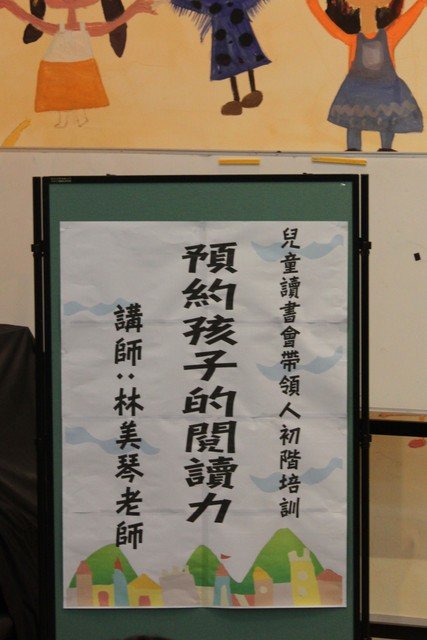 兒童讀書會帶領人初階培訓
預約孩子的閱讀力
講師：林美琴老師